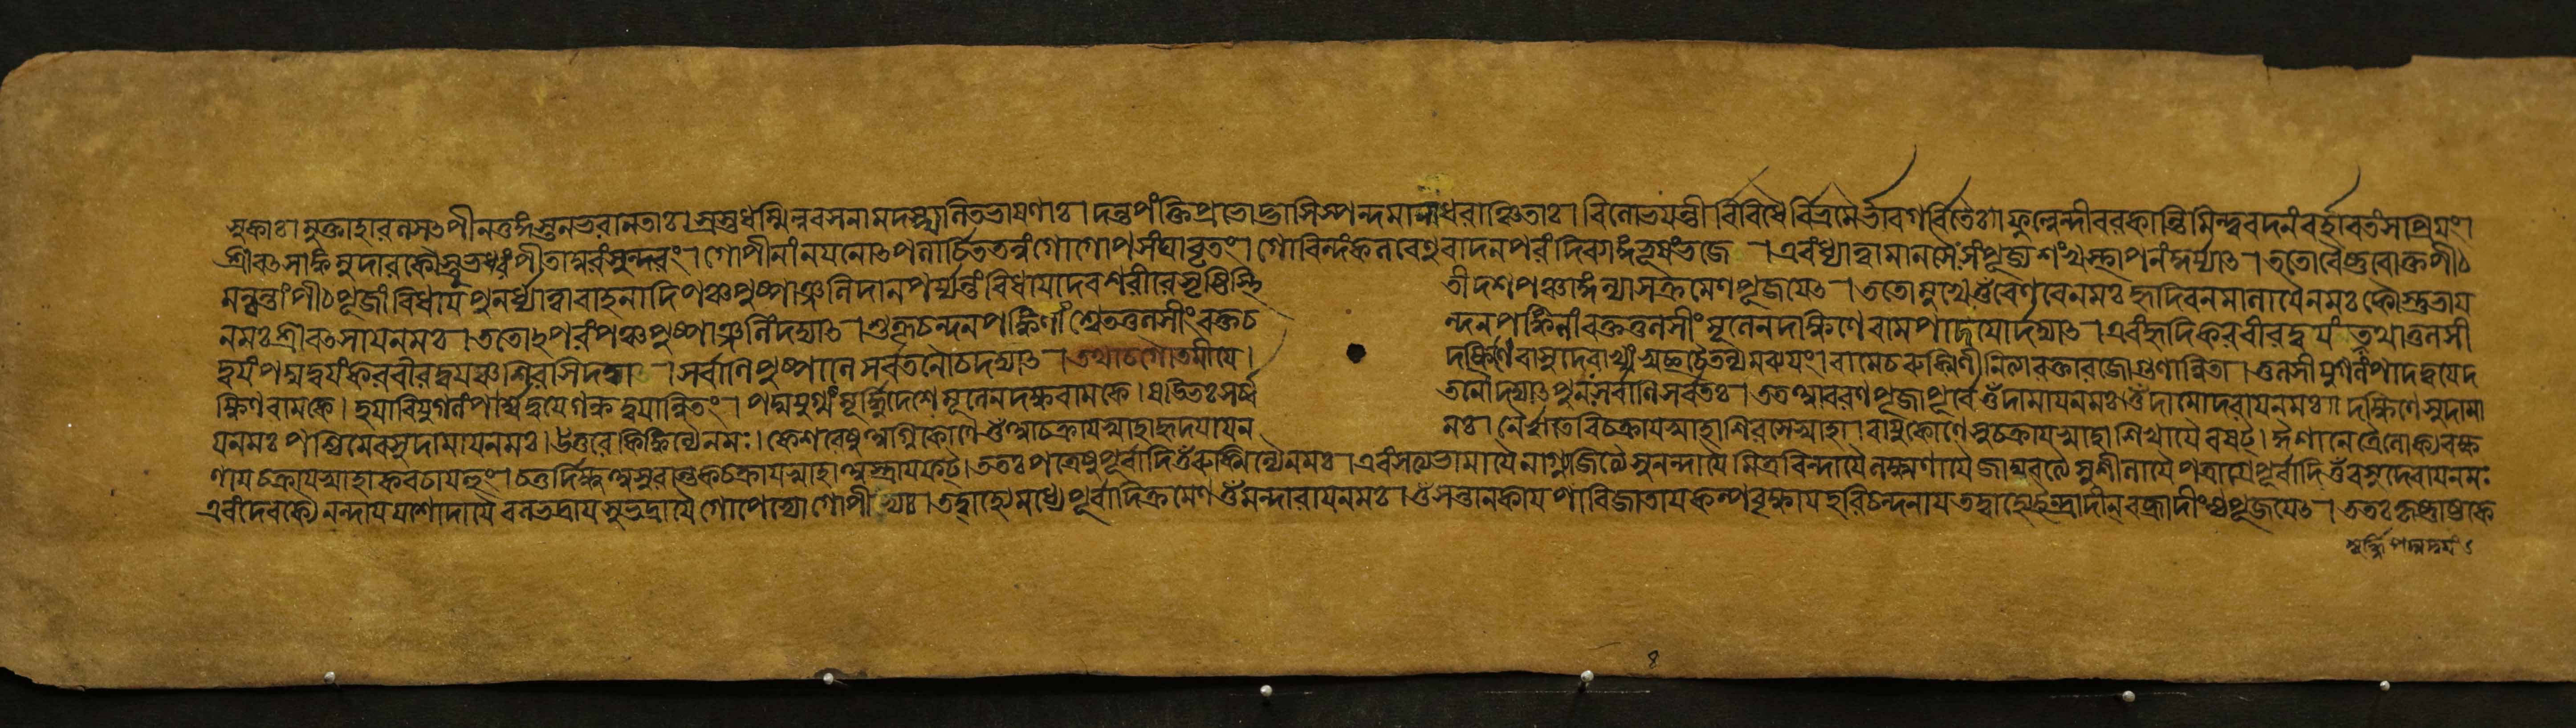 সুকাঃ। মুক্তাহারলসৎপীনতুঙ্গস্তনভরানতাঃ। স্রস্তধম্মিল্লবসনামদস্খলিতভাষণাঃ। দন্তপংক্তিপ্রভোদ্ভাসিস্পন্দমানাধরাঞ্চিতাঃ। বিলোভয়ন্তী র্বিবিধৈ র্বিভ্রমৈর্ভাবগর্বিতৈঃ॥ ফুল্লেন্দীবরকান্তিমিন্দুবদনং বর্হাবতংসপ্রিয়ং।
শ্রীবৎসাঙ্কমুদারকৌস্তুভধরং পীতাম্বরং সুন্দরং। গোপীনাং নয়নোৎপলার্চিততনুং গোগোপসংঘাবৃতং। গোবিন্দং কলবেণুবাদনপরং দিব্যাঙ্গভূষং ভজে। এবং ধ্যাত্বা মানসৈঃ সংপূজ্য শংখস্থাপনং কুর্য্যাৎ। ততো বৈষ্ণবোক্তপীঠ
মন্ত্রন্তাং পীঠপূজাং বিধায় পুনর্ধ্যাত্বাবাহনাদি পঞ্চপুষ্পাঞ্জলিদানপর্য্যন্তং বিধায় দেবশরীরে সৃষ্টিস্থি তীদশপঞ্চাঙ্গন্যাসক্রমেণ পূজয়েৎ। ততো মুখে ওঁ বেণবে নমঃ হৃদি বনমালায়ৈ নমঃ কৌস্তুভায়
নমঃ শ্রীবৎসায় নমঃ। ততোঽপরং পঞ্চপুষ্পাঞ্জলিং দদ্যাৎ। শুক্লচন্দনপঙ্কিলাং শ্বেততুলসীং রক্তচ ন্দনপঙ্কিলাং রক্ততুলসীং মূলেন দক্ষিণে বামপাদয়োর্দদ্যাৎ। এবং হৃদি করবীরদ্বয়ং তথা তুলসী
দ্বয়ং পদ্মদ্বয়ং করবীরদ্বয়ঞ্চ শিরসি দদ্যাৎ। সর্বাণি পুষ্পাণি সর্বতনৌ চ দদ্যাৎ। তথা চ গৌতমীয়ে। দক্ষিণং বাসুদেবাখ্যং স্বচ্ছং চৈতন্যমব্যয়ং। বামে চ রুক্মিণী নিত্যা রক্তা রজোগুণান্বিতা। তুলসীযুগলং পাদদ্বয়ে দ
ক্ষিণবামকে। হয়ারিযুগলং পার্শ্বদ্বয়েশকদ্বয়ান্বিতং। পদ্মযুগ্মং মূর্দ্ধ্নিদেশে মূলেন দক্ষবামকে। ষট্টিভিঃ সর্ব তনৌ দদ্যাৎ পুনঃ সর্বাণি সর্বতঃ। তত আবরণপূজা পূর্বে ওঁ দামায় নমঃ। ওঁ দামোদরায় নমঃ॥ দক্ষিণে সুদামা
য় নমঃ পশ্চিমে বসুদামায় নমঃ। উত্তরে কিঙ্কিণ্যৈ নমঃ। কেশরেষু অগ্নিকোণে ওঁ আচক্রায় স্বাহা হৃদয়ায় ন মঃ। নৈর্ঋতে বিচক্রায় স্বাহা শিরসে স্বাহা। বায়ুকোণে সুচক্রায় স্বাহা শিখায়ৈ বষট্। ঈশানে ত্রৈলোক্যরক্ষ
ণায় চক্রায় স্বাহা কবচায় হুং। চতুর্দিক্ষু অসুরান্তকচক্রায় স্বাহা অস্ত্রায় ফট্। ততঃ পত্রেষু পূর্বাদি ওঁ রুক্মিণ্যৈ নমঃ। এবং সত্যভামায়ৈ নাগ্নজিত্যৈ সুনন্দায়ৈ মিত্রবিন্দায়ৈ লক্ষ্মণায়ৈ জাম্ববত্যৈ সুশীলায়ৈ পত্রাগ্রে পূর্বাদি ওঁ বসুদেবায় নমঃ
এবং দেবক্যৈ নন্দায় যশোদায়ৈ বলভদ্রায় সুভদ্রায়ৈ গোপেভ্যো গোপীভ্যঃ। তদ্বাহ্যে মধ্যে পূর্বাদিক্রমেণ ওঁ মন্দারায় নমঃ। ওঁ সন্তানকায় পারিজাতায় কল্পবৃক্ষায় হরিচন্দনায় তদ্বাহ্যে ইন্দ্রাদীন্ বজ্রাদীংশ্চ পূজয়েৎ। ততঃ কৃষ্ণাষ্টকে
মূর্দ্ধ্নি পদ্মদ্বয়ং ৫
৪